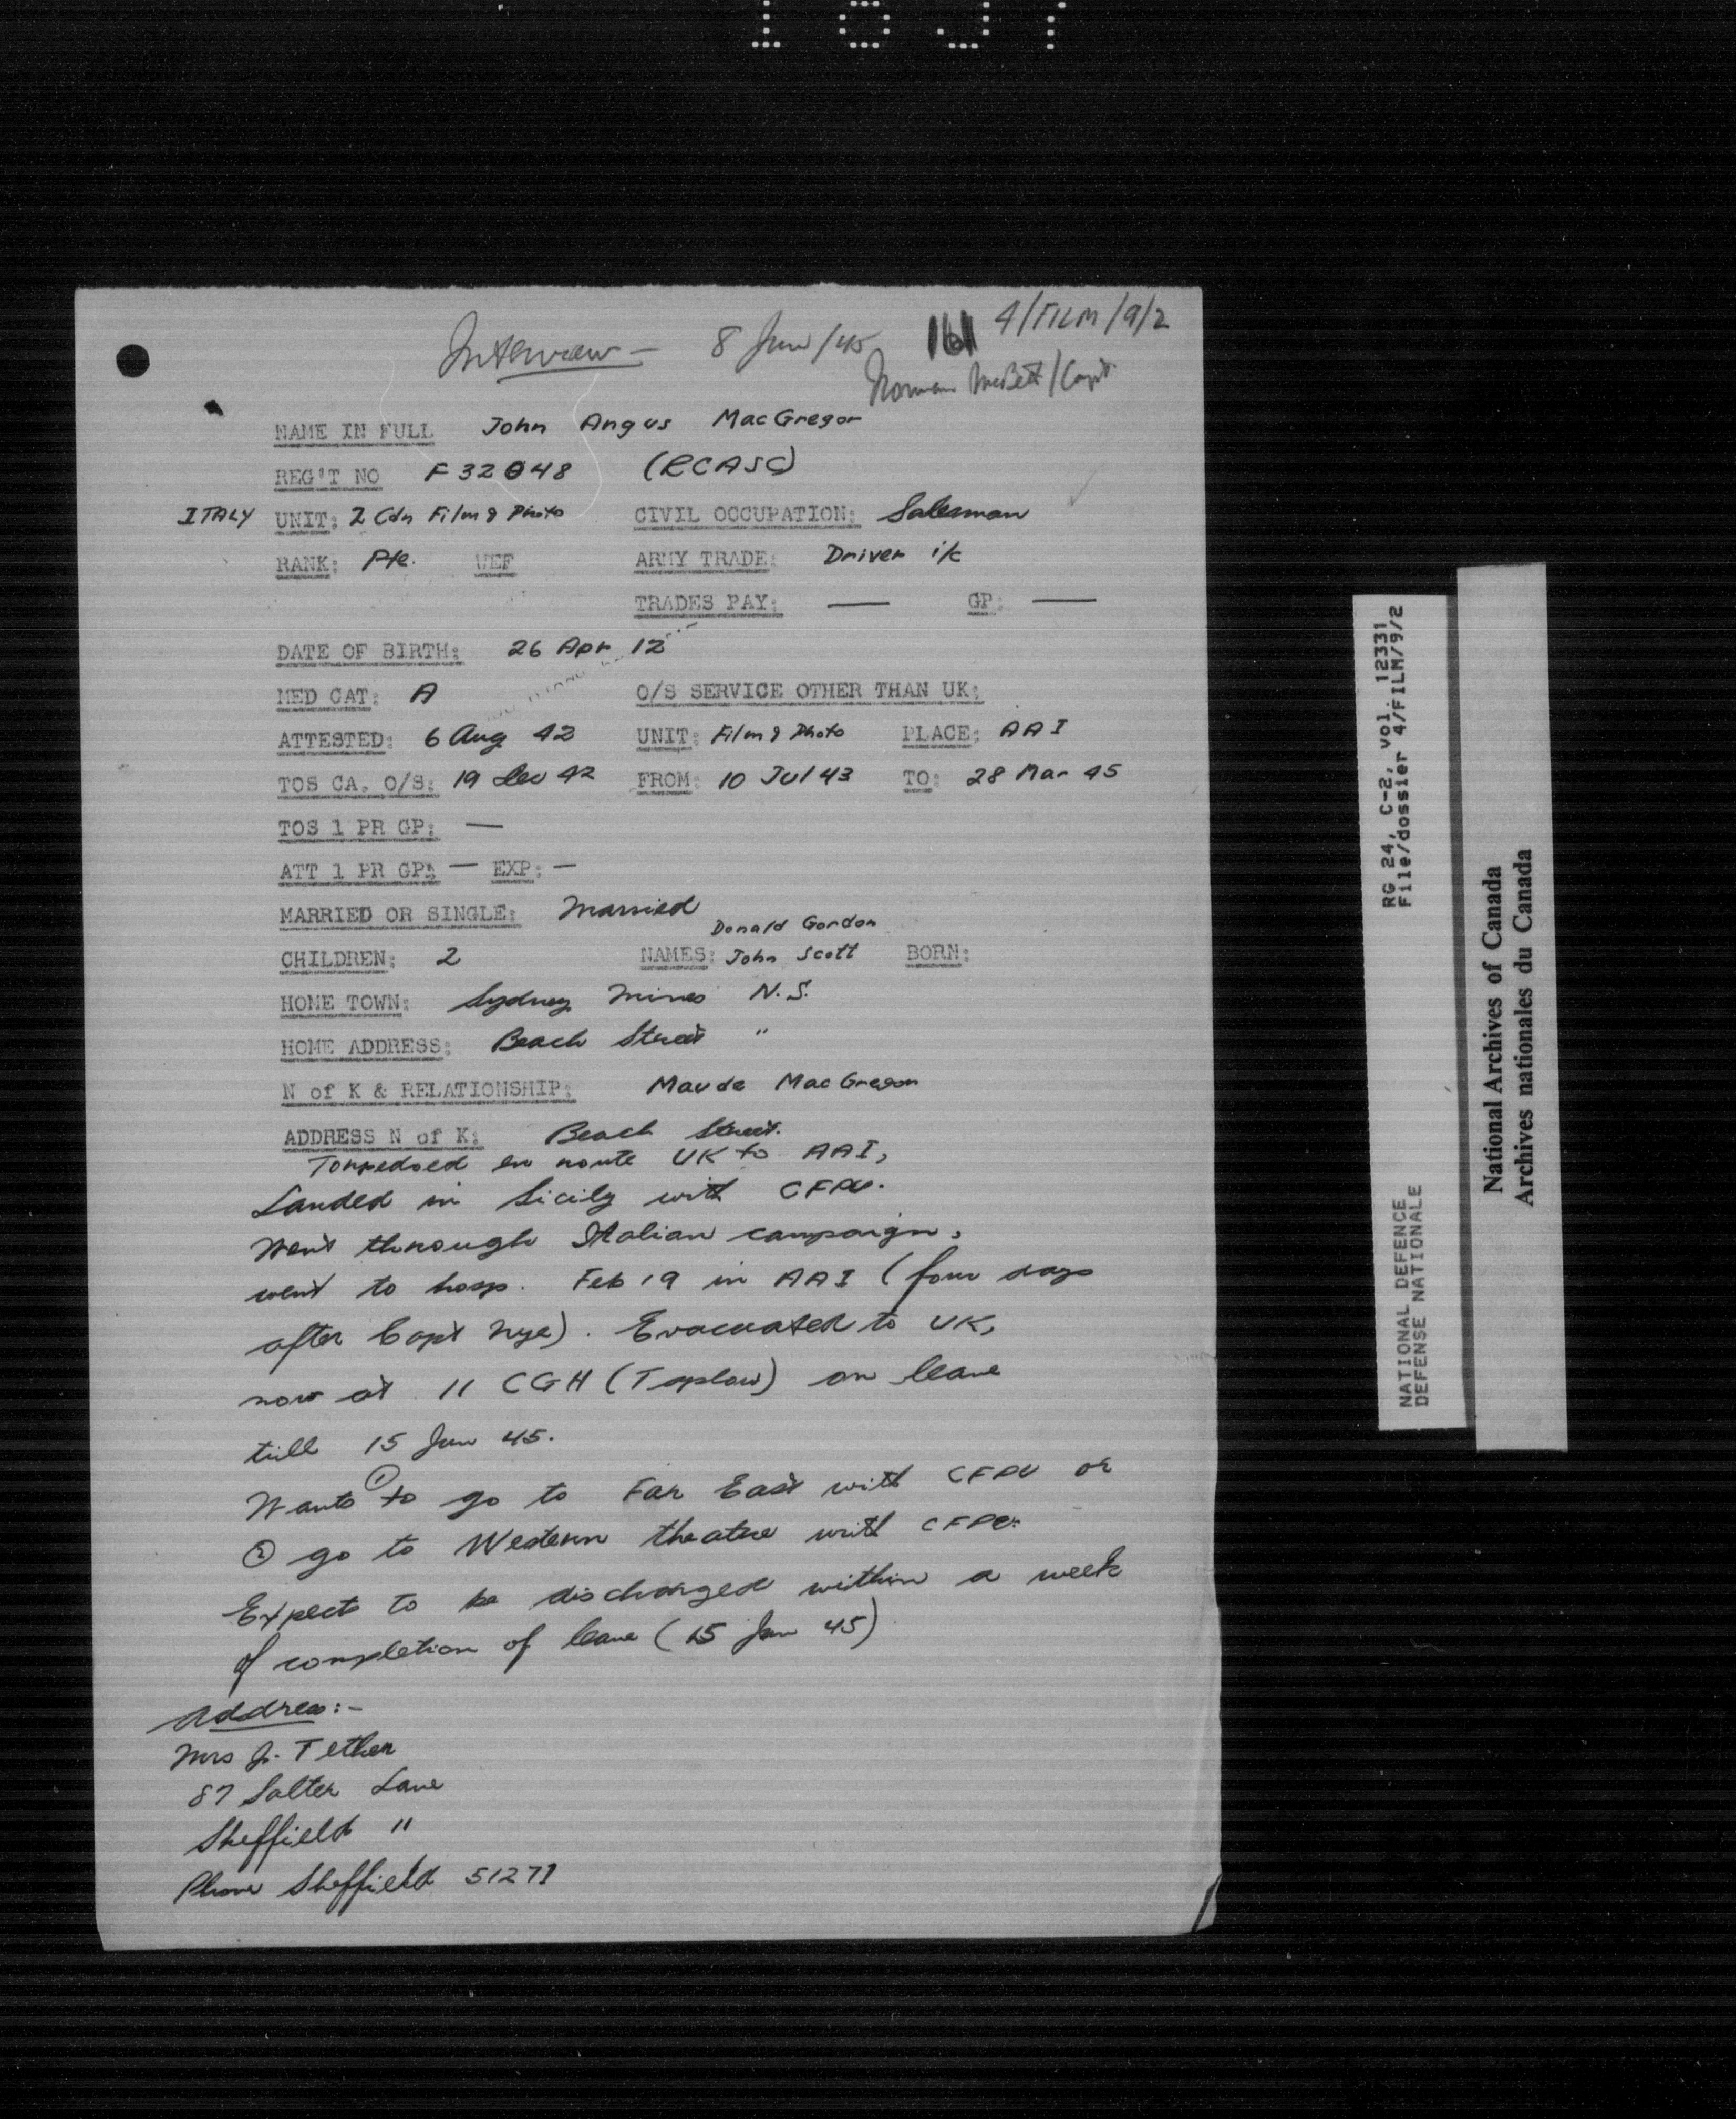 Interview - 8 Jun/45 161 4/FILM/9/2
Norman McBett/Capt.
NAME IN FULL John Angus MacGregor
REG'T NO F 32048 (RCASC)
ITALY UNIT: 2 Cdn Film & Photo CIVIL OCCUPATION: Salesman
RANK: Pte. WEF ARMY TRADE: Driver i/c
TRADES PAY: — GP: —
DATE OF BIRTH: 26 Apr 12
MED CAT: A O/S SERVICE OTHER THAN UK:
ATTESTED: 6 Aug 42 UNIT: Film & Photo PLACE: AAI
TOS CA. O/S: 19 Dec 42 FROM: 10 Jul 43 TO: 28 Mar 45
TOS 1 PR GP: —
ATT 1 PR GP: — EXP: —
MARRIED OR SINGLE: Married
Donald Gordon
CHILDREN: 2 NAMES: John Scott BORN:
HOME TOWN: Sydney Mines N.S.
HOME ADDRESS: Beach Street "
N of K & RELATIONSHIP: Maude MacGregor
ADDRESS N of K: Beach Street.
Torpedoed en route UK to AAI,
Landed in Sicily with CFPU.
Went through Italian campaign,
went to hosp. Feb 19 in AAI (four days
after Capt Nye). Evacuated to UK,
now at 11 CGH (Taplow) on leave
till 15 Jun 45.
Wants ① to go to Far East with CFPU or
② go to Western theatre with CFPU.
Expects to be discharged within a week
of completion of leave (15 Jun 45)
Address:-
Mrs J. Tether
87 Salter Lane
Sheffield 11
Phone Sheffield 51271
RG 24, C-2, vol. 12331
File/dossier 4/FILM/9/2
NATIONAL DEFENCE
DEFENSE NATIONALE
National Archives of Canada
Archives nationales du Canada